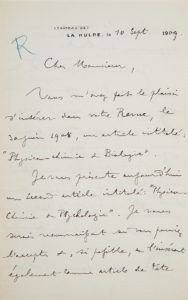 R
LA HULPE, le 10 Sept. 1909
Cher Monsieur,
Vous m'avez fait le plaisir
d'insérer dans votre Revue, le
30 juin 1908, un article intitulé:
"Physico-chimie & Biologie".
Je vous présente aujourd'hui
un second article intitulé: "Physico-
Chimie & Psychologie". Je vous
serais reconnaissant de
l'accepter &, si possible, de l'insérer
également comme article de tête